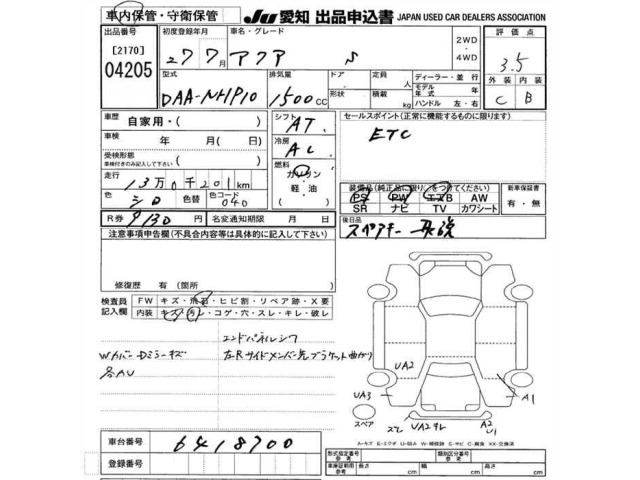 車内保管・守衛保管
JU 愛知 出品申込書 JAPAN USED CAR DEALERS ASSOCIATION
出品番号 初度登録年月 車名・グレード 2WD ・ 4WD 評価点
[2170] 27年7月 アクア S 3.5
04205
型式 排気量 ドア 定員 人 ディーラー・並行 外装 内装
DAA-NHP10 1500CC 形状 積載 kg モデル年式 年 C B
ハンドル 左・右
車歴 自家用・( ) シフト AT セールスポイント(正常に機能するものに限ります)
車検 年 月(日) 冷房 AC ETC
受検形態 ( )
車検付きのみ記入して下さい
燃料 ガソリン
走行 13万0千201km 軽・油
装備品(純正品に限り)をつけてください 新車保証書
色 シロ 色替 色コード 040 PS PW エアB AW 有・無
SR ナビ TV カワシート
R券 9130円 名変通知期限 月 日 後日品
注意事項申告欄(不具合内容等は具体的に記入して下さい) スペアキー 取説
修復歴 有(箇所 )
検査員記入欄 FW キズ・飛石・ヒビ割・リペア跡・X要
内装 キズ・汚レ・コゲ・穴・スレ・キレ・破レ
エンドパネルシワ
Wカバー Dミラーキズ 左Rサイドメンバー先ブラケット曲がり
各AU
UA2
UA3 A1
スペア スレ UA2 キレ A2
U1
A-キズ E-エクボ U-凹み W-補修跡 S-サビ C-腐食 XX-交換済
車台番号 6418700 形式指定番号 参考 類別区分番号 参考
登録番号 車庫証明用 参考 長さ cm 幅 cm 高さ cm